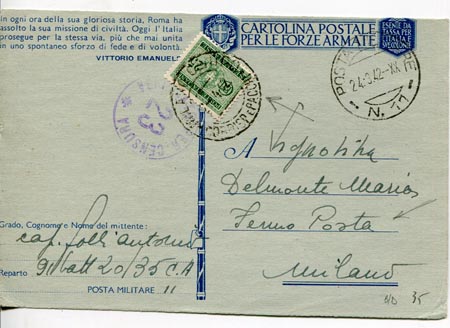 In ogni ora della sua gloriosa storia, Roma ha
assolto la sua missione di civiltà. Oggi l'Italia
prosegue per la stessa via, più che mai unita
in uno spontaneo sforzo di fede e di volontà.
VITTORIO EMANUELE
CARTOLINA POSTALE
PER LE FORZE ARMATE
ESENTE DA
TASSA PER
L'ITALIA E
POSTA
24.3.42-XX
N. 11
CENSURA
23
A
Delmonte Maria
Fermo Posta
Milano
Grado, Cognome e Nome del mittente:
cap. Antonio
Reparto 9° batt 20/35 C.A
POSTA MILITARE 11
35